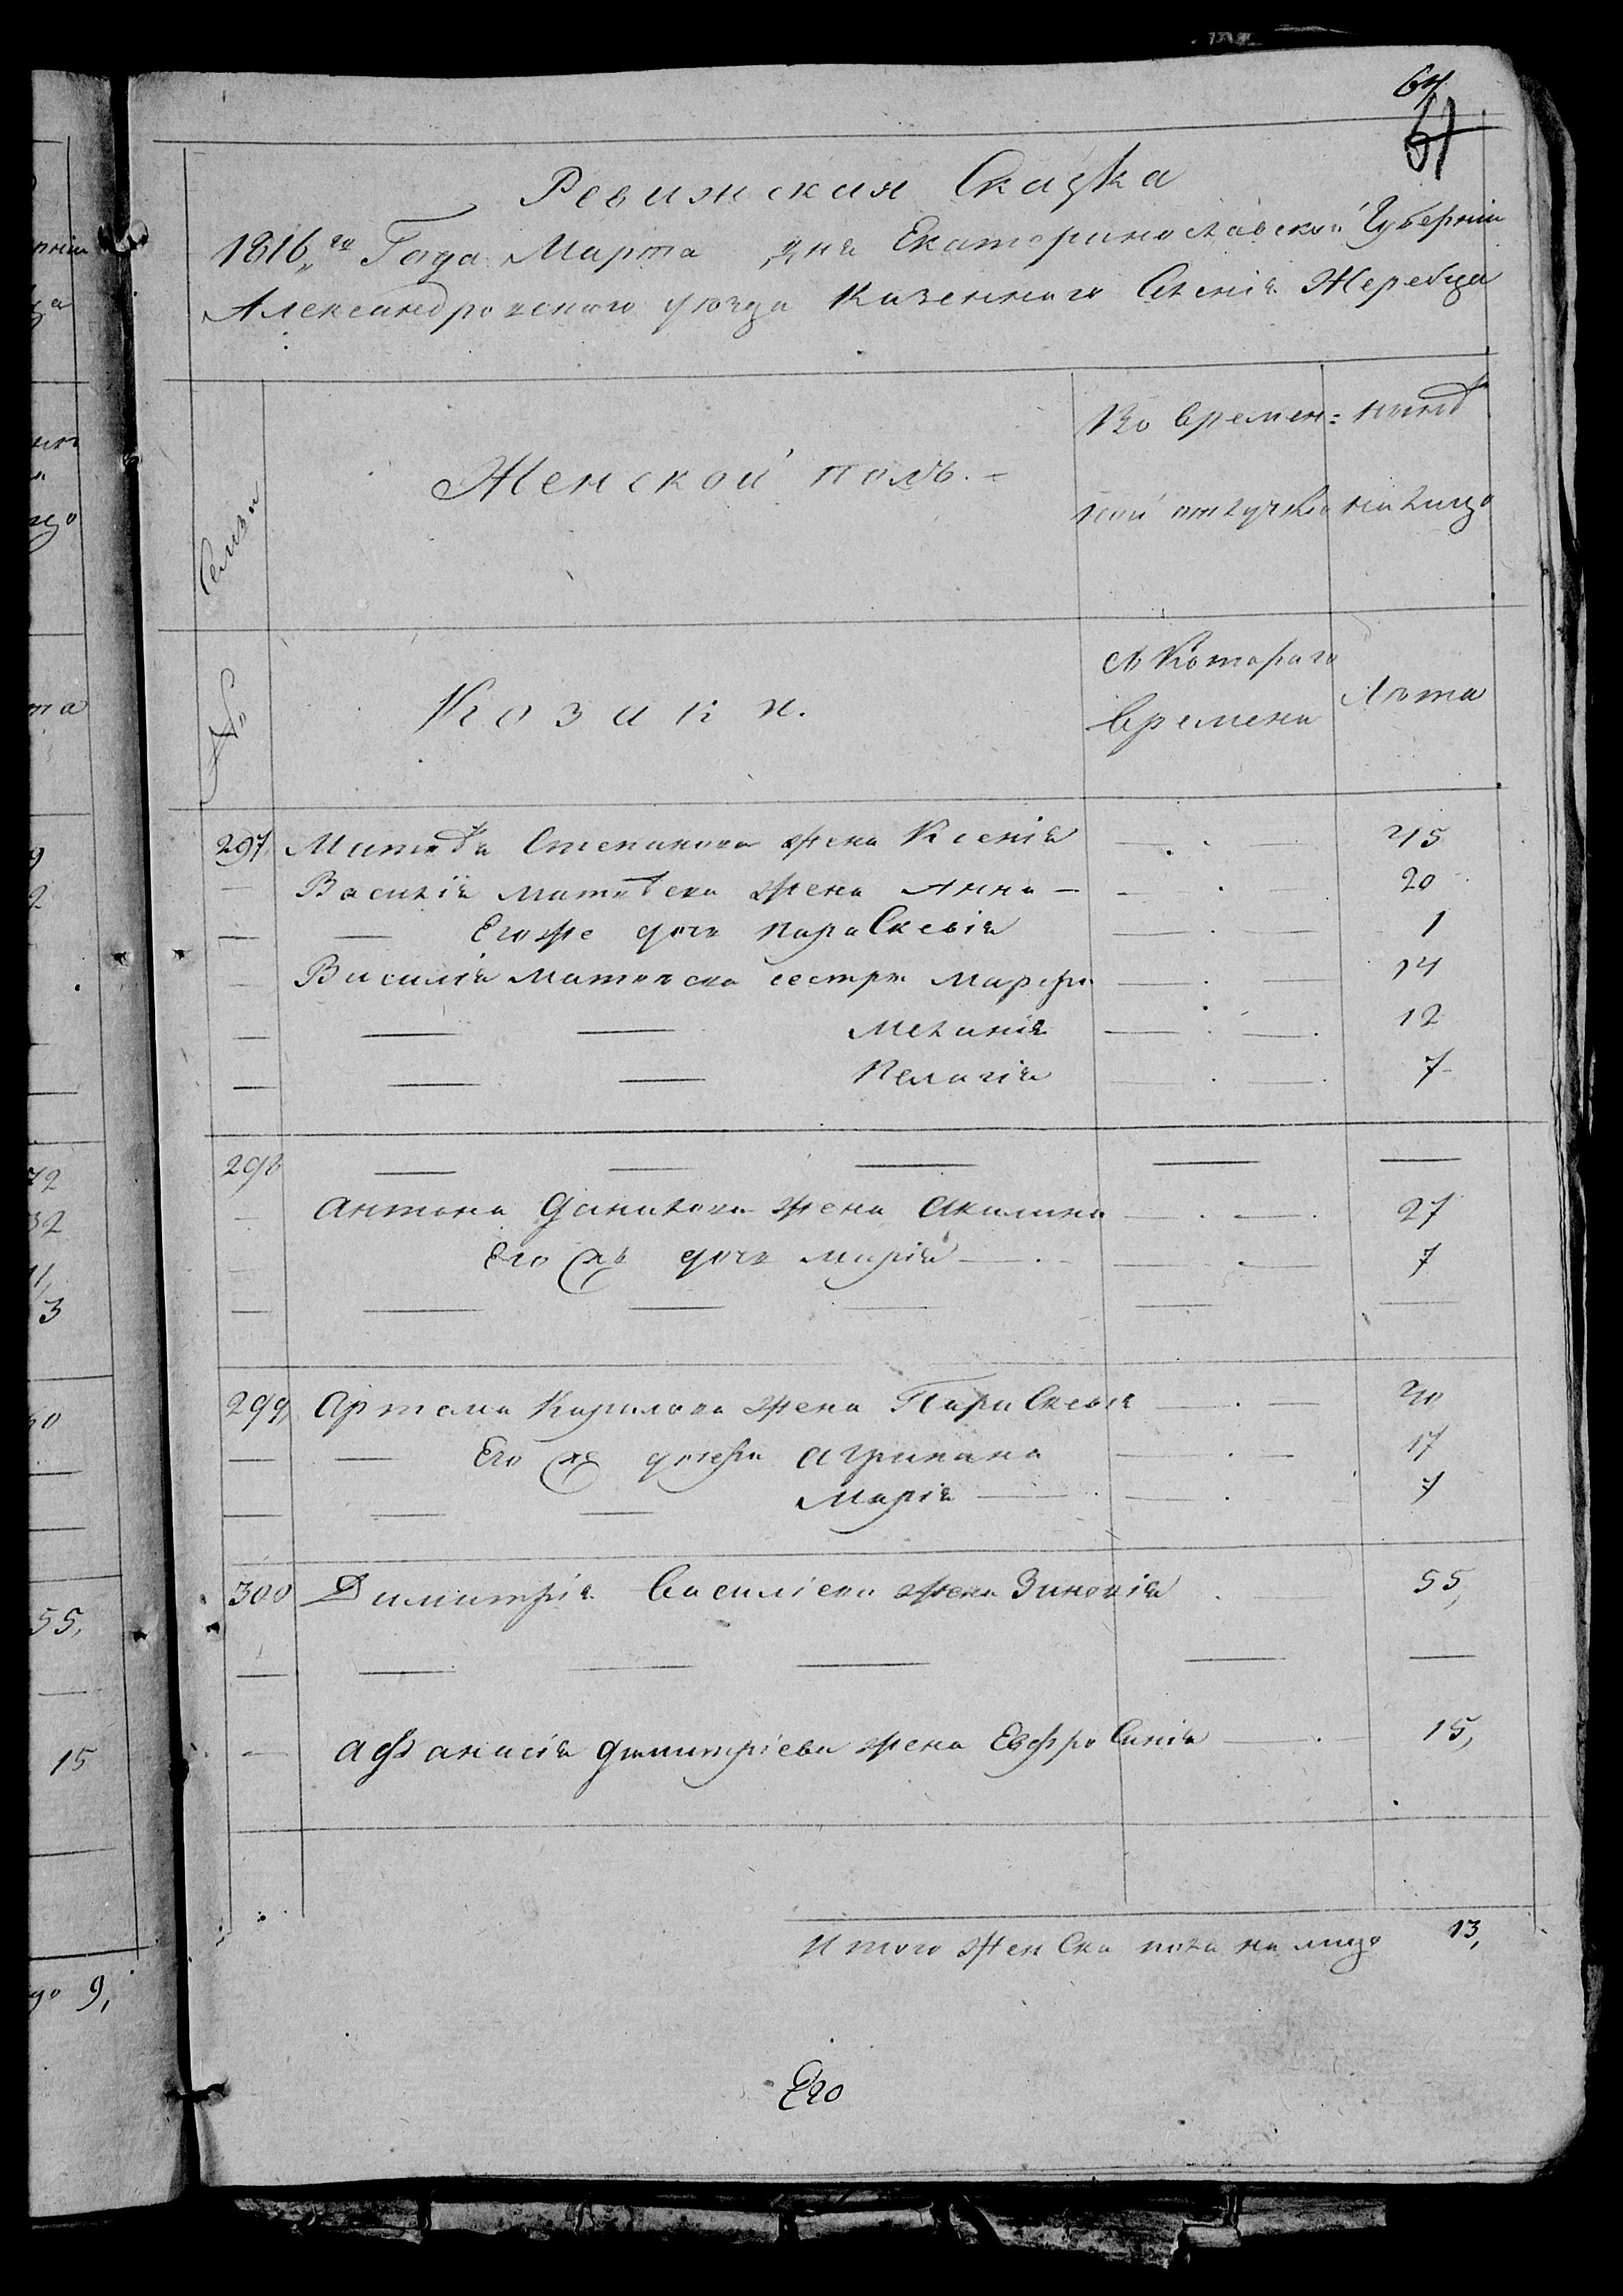 64
61
Ревижская Сказка
1816,, го Года Марта дня Екатеринославской Губернии
Александровского уезда Казенного Селения Жеребца
Семьи
Женской полъ. -
Во времен: ной отлучке
ныне на лицо
№
Козаки.
Съ Котораго времени
Лета
297 Матвея Степанова жена Ксения 45
Василия Матвеева жена Анна 20
Его же дочь параскевия 1
Василия Матвеева сестры Марфа 14
Мелания 12
Пелагия 7
298
Антона Данилова жена Акилина 27
Его жъ дочь мария 7
299 Артема Кирилова жена Параскевия 40
Его же дочери Агрипина 17
Мария 7
300 Димитрия Василиева жена Зиновия 55,
Афанасия Димитриева жена Евфросиния 15,
Итого женска пола на лицо 13,
Его
72
32
11,
3
55,
15
9,